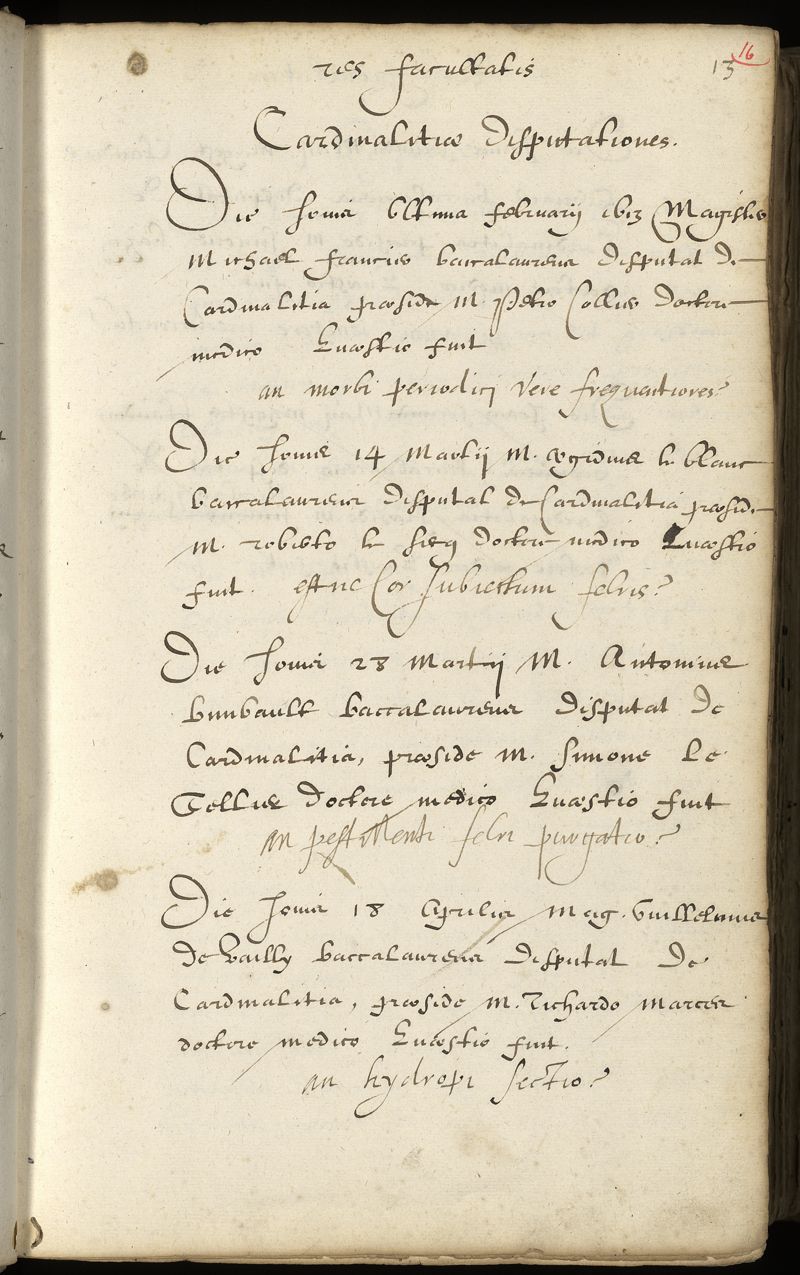 res facultatis
13 16
Cardinalitiæ disputationes.
Die Jovis ultima februarij 1613 Magister
Michael francier baccalaureus disputat de
Cardinalitia præside M. Petro Collier doctore
medico Quæstio fuit
an morbi periodici vere frequentiores?
Die Jovis 14 Martij M. ægidius le blanc
baccalaureus disputat de Cardinalitia præside
M. roberto le secq doctore medico Quæstio
fuit. estne Cor subiectum febris?
Die Jovis 28 Martij M. Antonius
bimbault baccalaureus disputat de
Cardinalitia, præside M. Simone le
Tellier doctore medico Quæstio fuit
an pestilenti febri purgatio?
Die Jovis 18 Aprilis Mag. Guillelmus
de Vailly baccalaureus disputat de
Cardinalitia, præside M. Richardo marces
doctore medico Quæstio fuit.
an hydropi sectio?